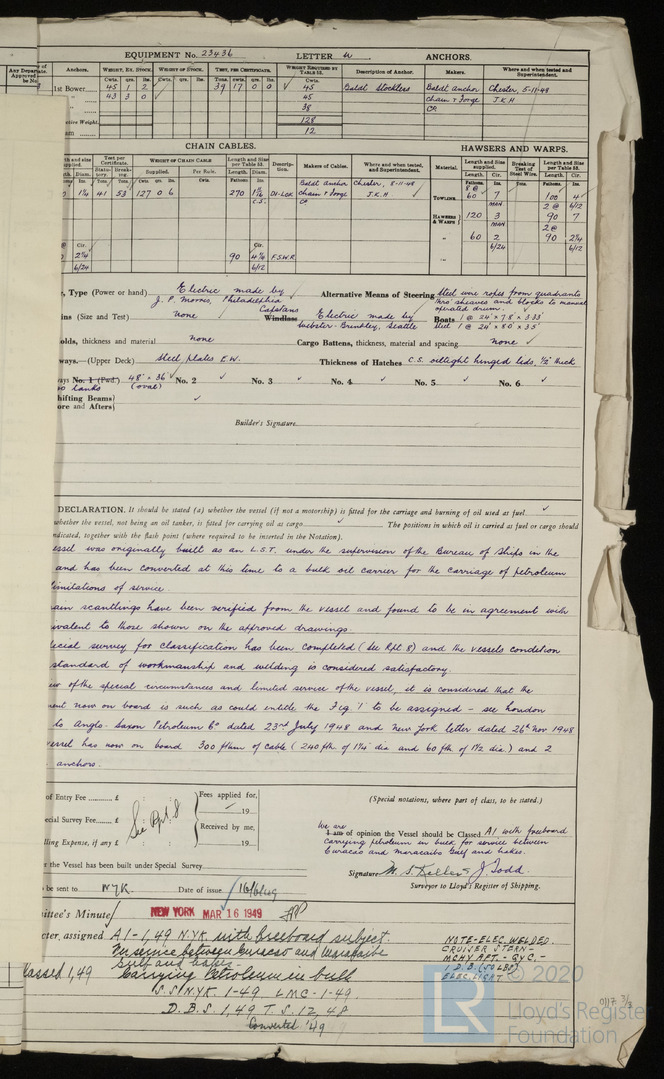 EQUIPMENT No. 23436 LETTER W ANCHORS.
Any Departure Approved by No.
Anchors. WEIGHT, EX. STOCK. WEIGHT OF STOCK. TEST, PER CERTIFICATE. WEIGHT REQUIRED BY TABLE 53. Description of Anchor. Makers. Where and when tested and Superintendent.
Cwts. qrs. lbs. Cwts. qrs. lbs. Tons. cwts. qrs. lbs. Cwts.
1st Bower 45 1 2 39 17 0 0 45 Baldt Stockless Baldt Anchor Chester 5-11-48
43 3 0 45 Chain & Forge J.K.H
38 Co.
Weight. 128
12.
CHAIN CABLES. HAWSERS AND WARPS.
Test per Certificate. WEIGHT OF CHAIN CABLE Length and Size per Table 53. Description. Makers of Cables. Where and when tested, and Superintendent. Material. Length and Size supplied. Breaking Test of Steel Wire. Length and Size per Table 53.
Supplied. Per Rule. Length. Diam. Length. Cir. Length. Cir.
1¼ 41 53 127 0 6 270 1 9/16 DI-LOK Baldt Anchor Chester, 8-11-48
Chain & Forge J.K.H
Co. C.S.
TOWLINE 60 7 100 4
HAWSERS & WARPS 120 3 MAN 90 7
60 2 6/24 90 2¼ 6/12
2¼ 6/24 90 4¼ 6/12 F.S.W.R.
Type (Power or hand) Electric made by J. P. Morris, Philadelphia Alternative Means of Steering Steel wire ropes from quadrants
thro' sheaves and blocks to manual operated drum.
(Size and Test) none Capstans Windlass Electric made by Webster-Brinkley, Seattle Boats 1 @ 24' x 7.8' x 3.33'
Steel 1 @ 24' x 8.0' x 3.5'
thickness and material none Cargo Battens, thickness, material and spacing none
(Upper Deck) Steel plates E.W. Thickness of Hatches C.S. oiltight hinged lids, ½" thick
No. 1 (Fwd.) 48" x 36" (oval) No. 2 No. 3 No. 4 No. 5 No. 6
tanks
Shifting Beams
Fore and Afters
Builder's Signature
DECLARATION. It should be stated (a) whether the vessel (if not a motorship) is fitted for the carriage and burning of oil used as fuel
whether the vessel, not being an oil tanker, is fitted for carrying oil as cargo The positions in which oil is carried as fuel or cargo should
indicated, together with the flash point (where required to be inserted in the Notation).
vessel was originally built as an L.S.T. under the supervision of the Bureau of Ships in the
and has been converted at this time to a bulk oil carrier for the carriage of petroleum
limitations of service.
main scantlings have been verified from the vessel and found to be in agreement with
equivalent to those shown on the approved drawings.
Special survey for classification has been completed (see Rpt. 8) and the vessels condition
standard of workmanship and welding is considered satisfactory.
view of the special circumstances and limited service of the vessel, it is considered that the
now on board is such as could entitle the Fig. '1' to be assigned - see London
to Anglo-Saxon Petroleum Co dated 23rd July 1948 and New York letter dated 26th Nov 1948
vessel has now on board 300 fthm of cable (240 fth of 1¼" dia and 60 fth of 1½ dia.) and 2
anchors.
of Entry Fee £ : : Fees applied for,
Special Survey Fee £ See Rpt. 8 19
Travelling Expense, if any £ Received by me,
19
(Special notations, where part of class, to be stated.)
We are
I am of opinion the Vessel should be Classed A1 with freeboard
carrying petroleum in bulk for service between
Curacao and Maracaibo Gulf and Lakes.
the Vessel has been built under Special Survey
Signature J. Todd
Surveyor to Lloyd's Register of Shipping.
be sent to NYK Date of issue
Committee's Minute NEW YORK MAR 16 1949
assigned A1-1,49 N.YK with freeboard subject.
For service between Curacao and Maracaibo
Gulf and Lakes
Classed 1,49 Carrying Petroleum in bulk
S.S. NYK 1-49 LMC-1-49
D.B.S 1,49 T.S. 12,48
Converted '49
NOTE-ELEC. WELDED.
CRUISER STERN-
MCHY AFT.-GYC.-
ELEC. LIGHT
LR
© 2020
Lloyd's Register
Foundation